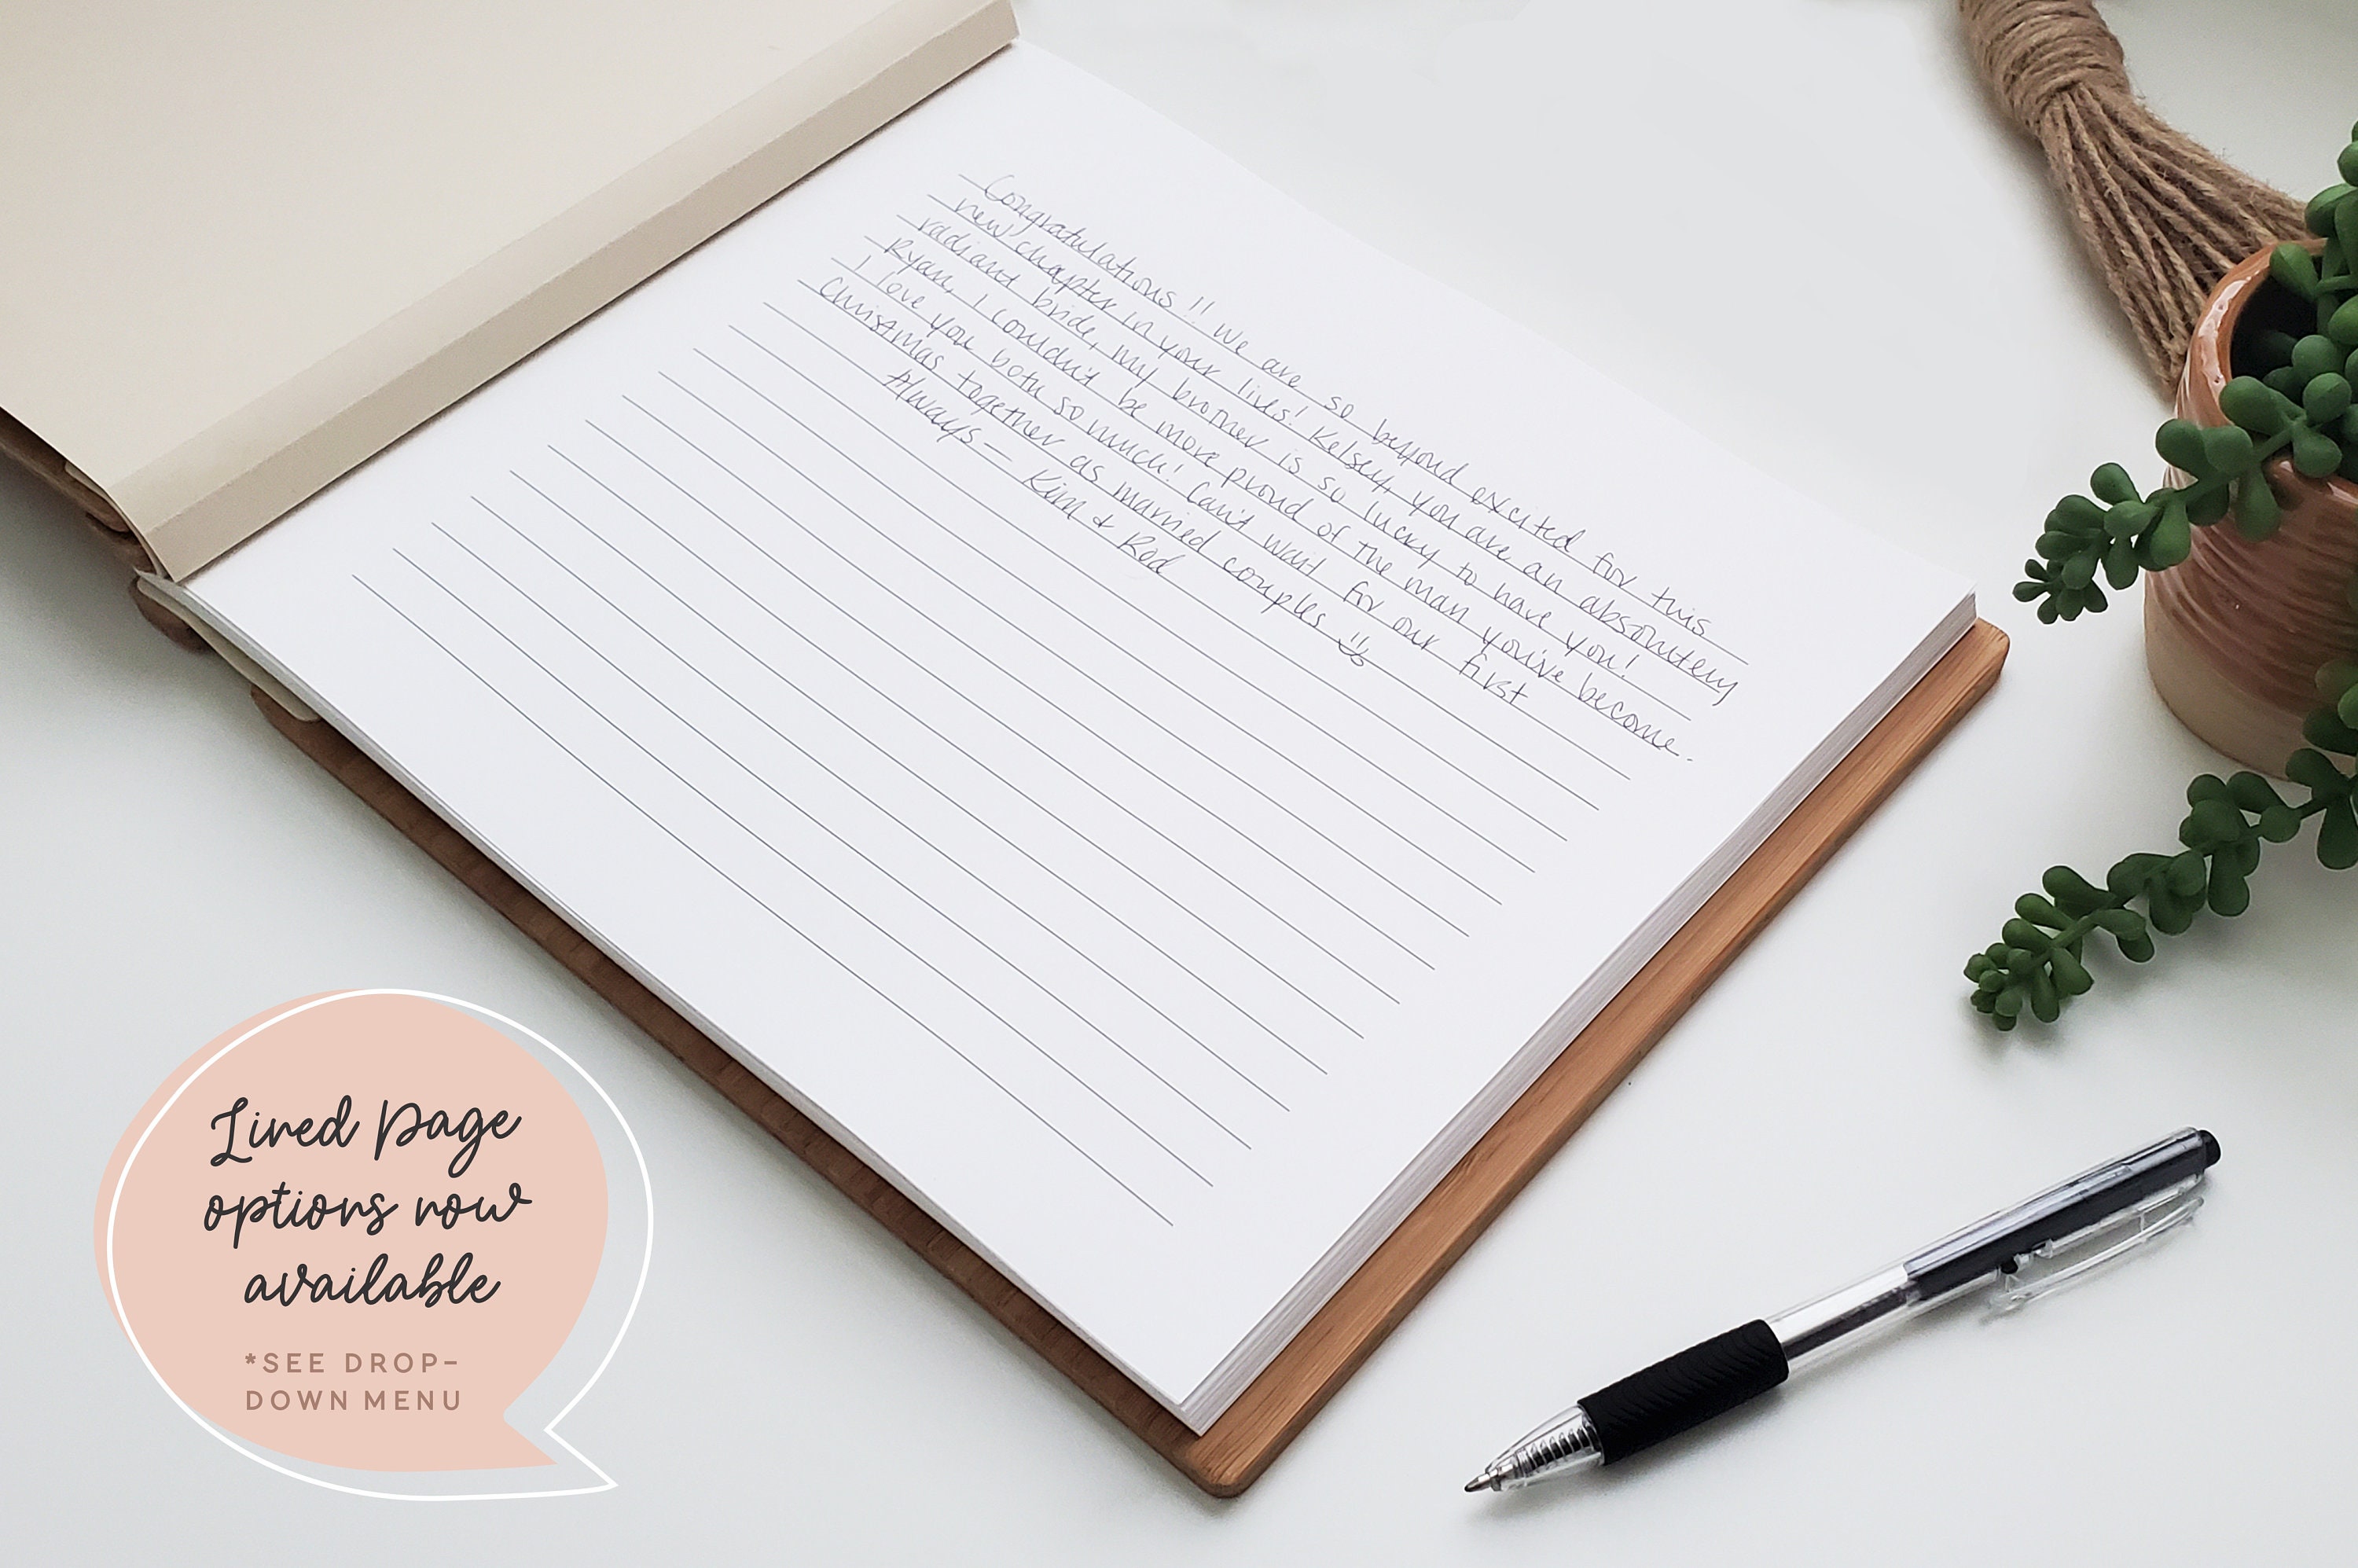 Congratulations!! We are so beyond excited for this
new chapter in your lives! Kelsey, you are an absolutely
radiant bride, my brother is so lucky to have you!
Ryan, I couldn't be more proud of the man you've become.
I love you both so much! Can't wait for our first
Christmas together as married couples
Always - Kim & Rod
Lined Page
options now
available
*SEE DROP-
DOWN MENU